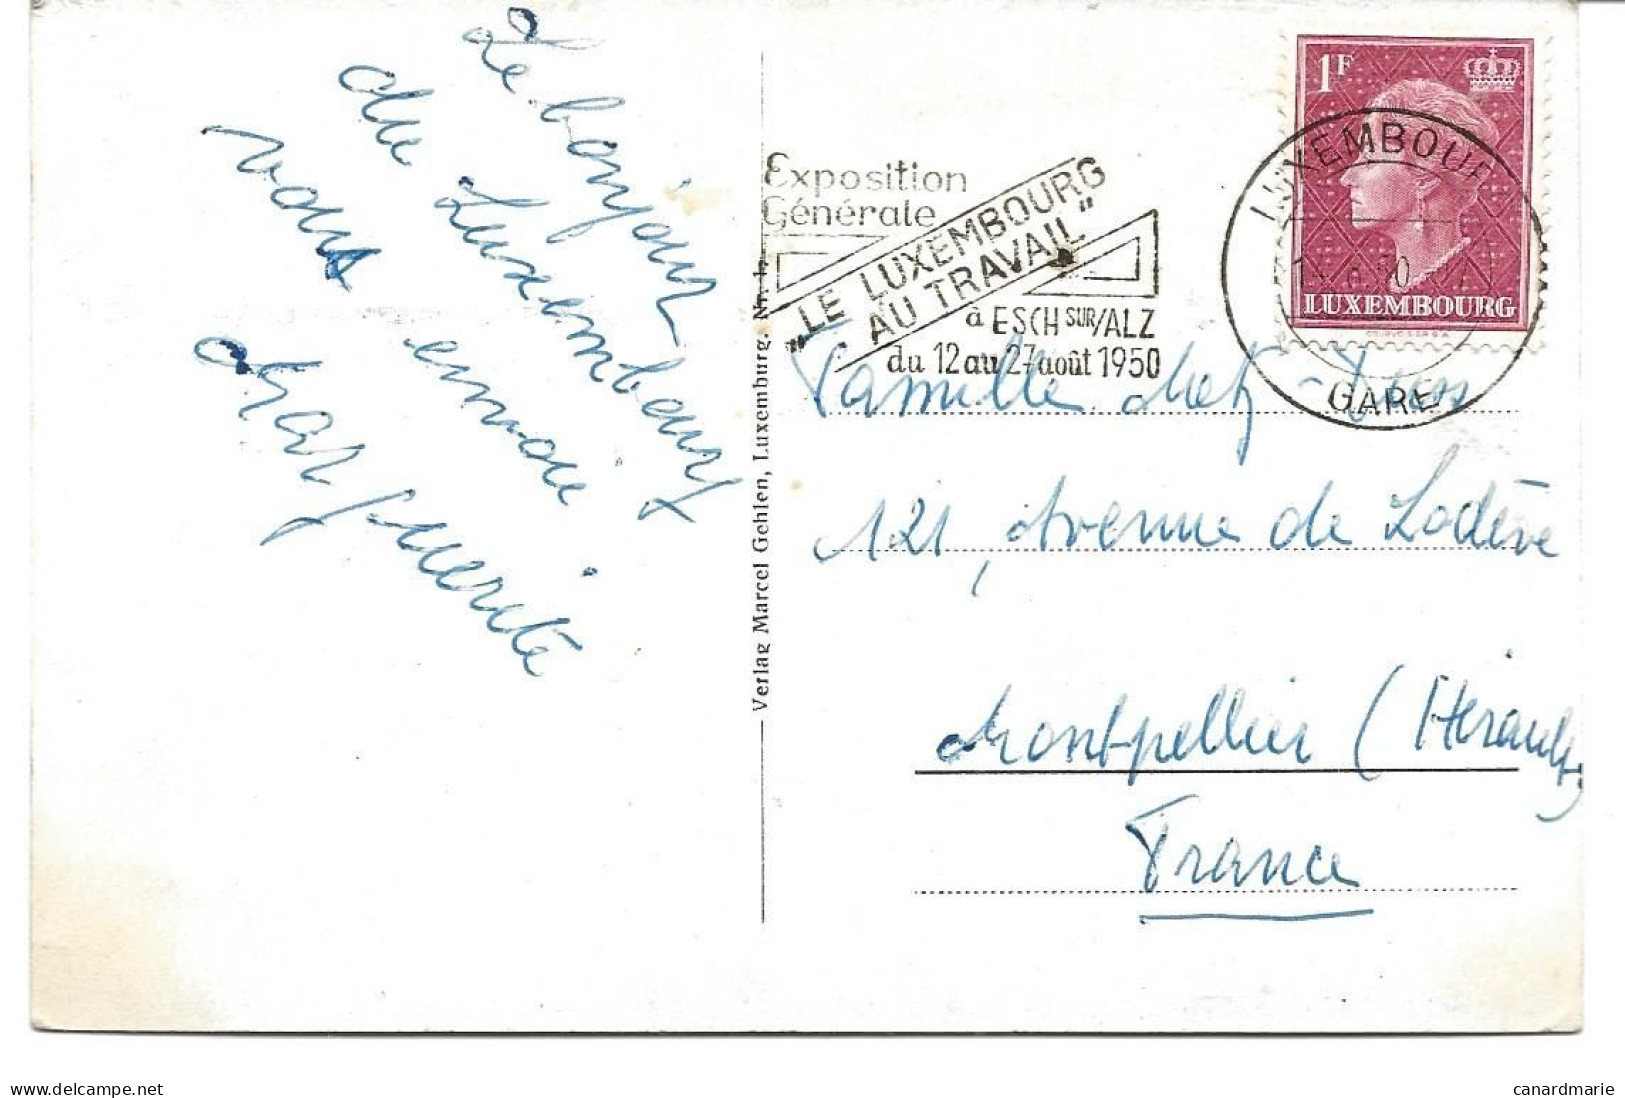 Le bonjour
de Luxembourg
vous envoie
Marguerite
Verlag Marcel Gehlen, Luxemburg. Nr.
Exposition
Générale
„LE LUXEMBOURG
AU TRAVAIL"
à ESCH SUR/ALZ
du 12 au 27 août 1950
1F
LUXEMBOURG
LUXEMBOURG
GARE
Famille Metz
121, Avenue de Lodève
Montpellier (Hérault)
France
delcampe.net
canardmarie